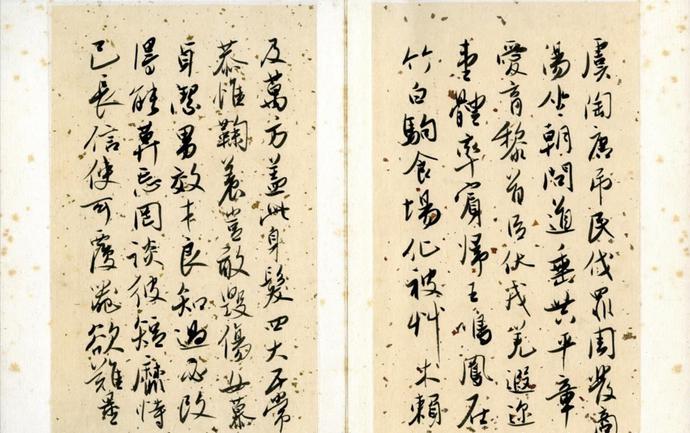 虞陶唐弔民伐罪周發商
湯坐朝問道垂拱平章
愛育黎首臣伏戎羌遐邇
壹體率賓歸王鳴鳳在
竹白駒食場化被艸木賴
及萬方蓋此身髮四大五常
恭惟鞠養豈敢毀傷女慕
貞潔男效才良知過必改
得能莫忘罔談彼短靡恃
己長信使可覆器欲難量